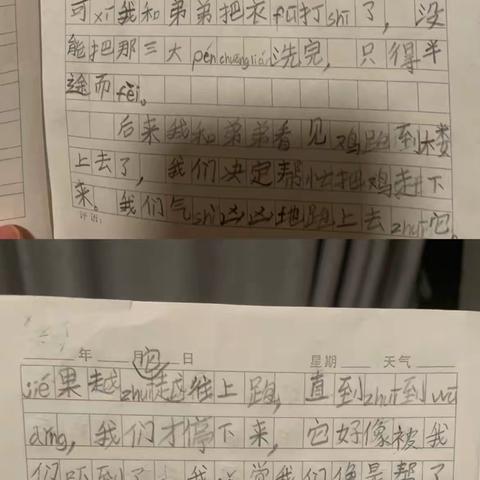 可xī我和弟弟把衣fū打shī了，没
能把那三大pénchuānglián洗完，只得半
途而fèi。
后来我和弟弟看见鸡跑到楼
上去了，我们决定帮忙把鸡赶下
来。我们气shì凶凶地跑上去zhuī它。
评语:
年 月 日 星期 天气
jié果越zhuī越往上跑，直到zhuī到wū
dǐng，我们才停下来，它好像被我
们吓到了，我